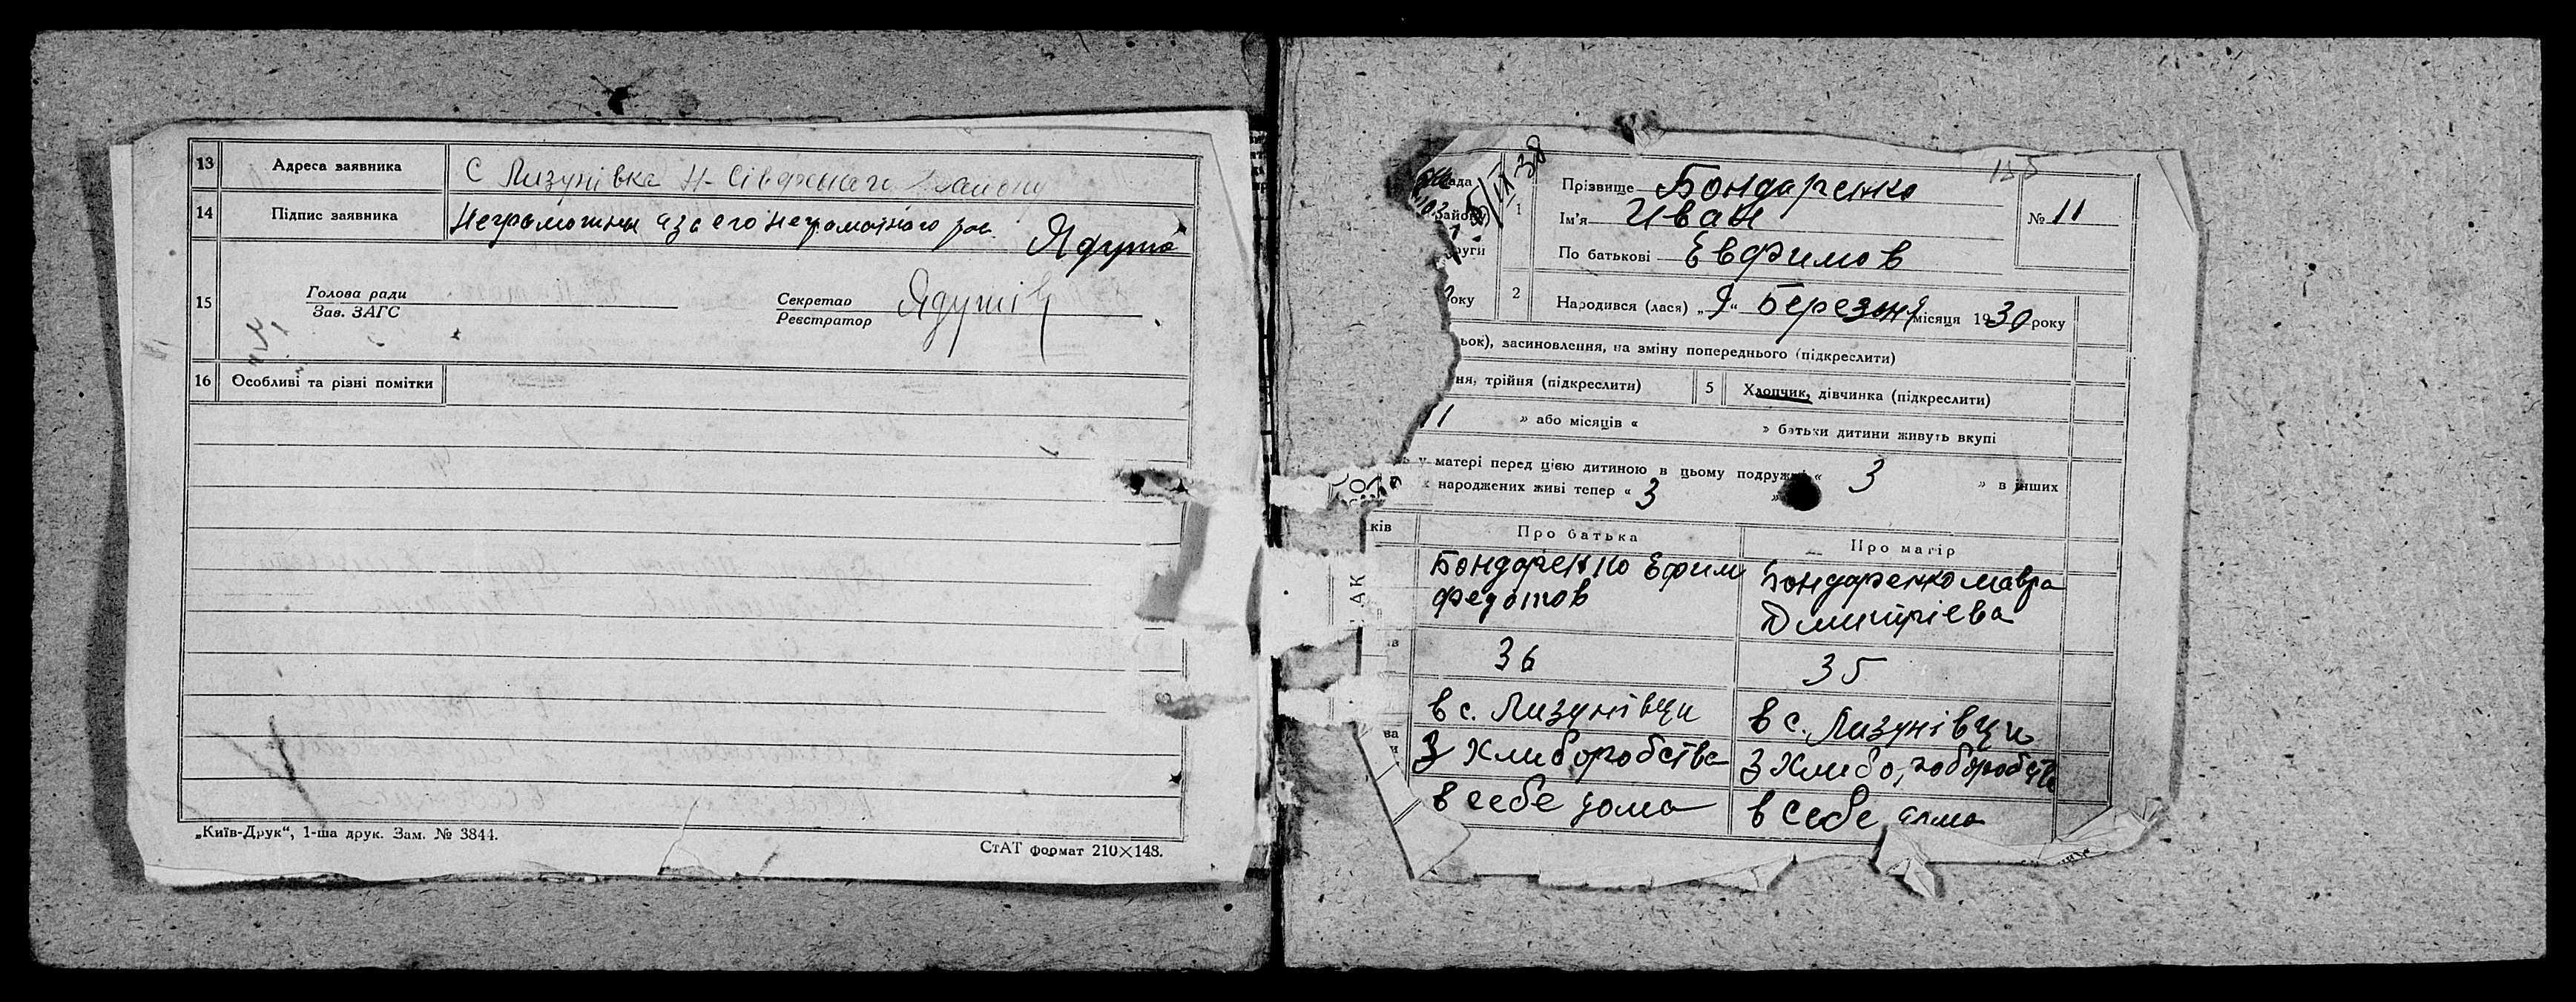 13 Адреса заявника С Лизунівка Н-Сіверського району
14 Підпис заявника Неграмотний а за его неграмотного рос. Ядута
15 Голова ради
Зав. ЗАГС
Секретар
Реєстратор
16 Особливі та різні помітки
„Київ-Друк“, 1-ша друк. Зам. № 3844.
СтАТ формат 210×148.
1 Прізвище Бондаренко
Ім'я Иван
№ 11
По батькові Евфимов
2 Народився (лася) „ “ Березня місяця 1930 року
ьок), засиновлення, на зміну попереднього (підкреслити)
ня, трійня (підкреслити) 5 Хлопчик, дівчинка (підкреслити)
11 » або місяців « » батьки дитини живуть вкупі
у матері перед цією дитиною в цьому подружжі « 3 » в інших
народжених живі тепер « 3 »
ків Про батька Про матір
Бондаренко Ефим
Федотов
Бондаренко Мавра
Дмитріева
36 35
в с. Лизунівци в с. Лизунівци
З Хлиборобства З Хлибо,
в себе дома в себе дома